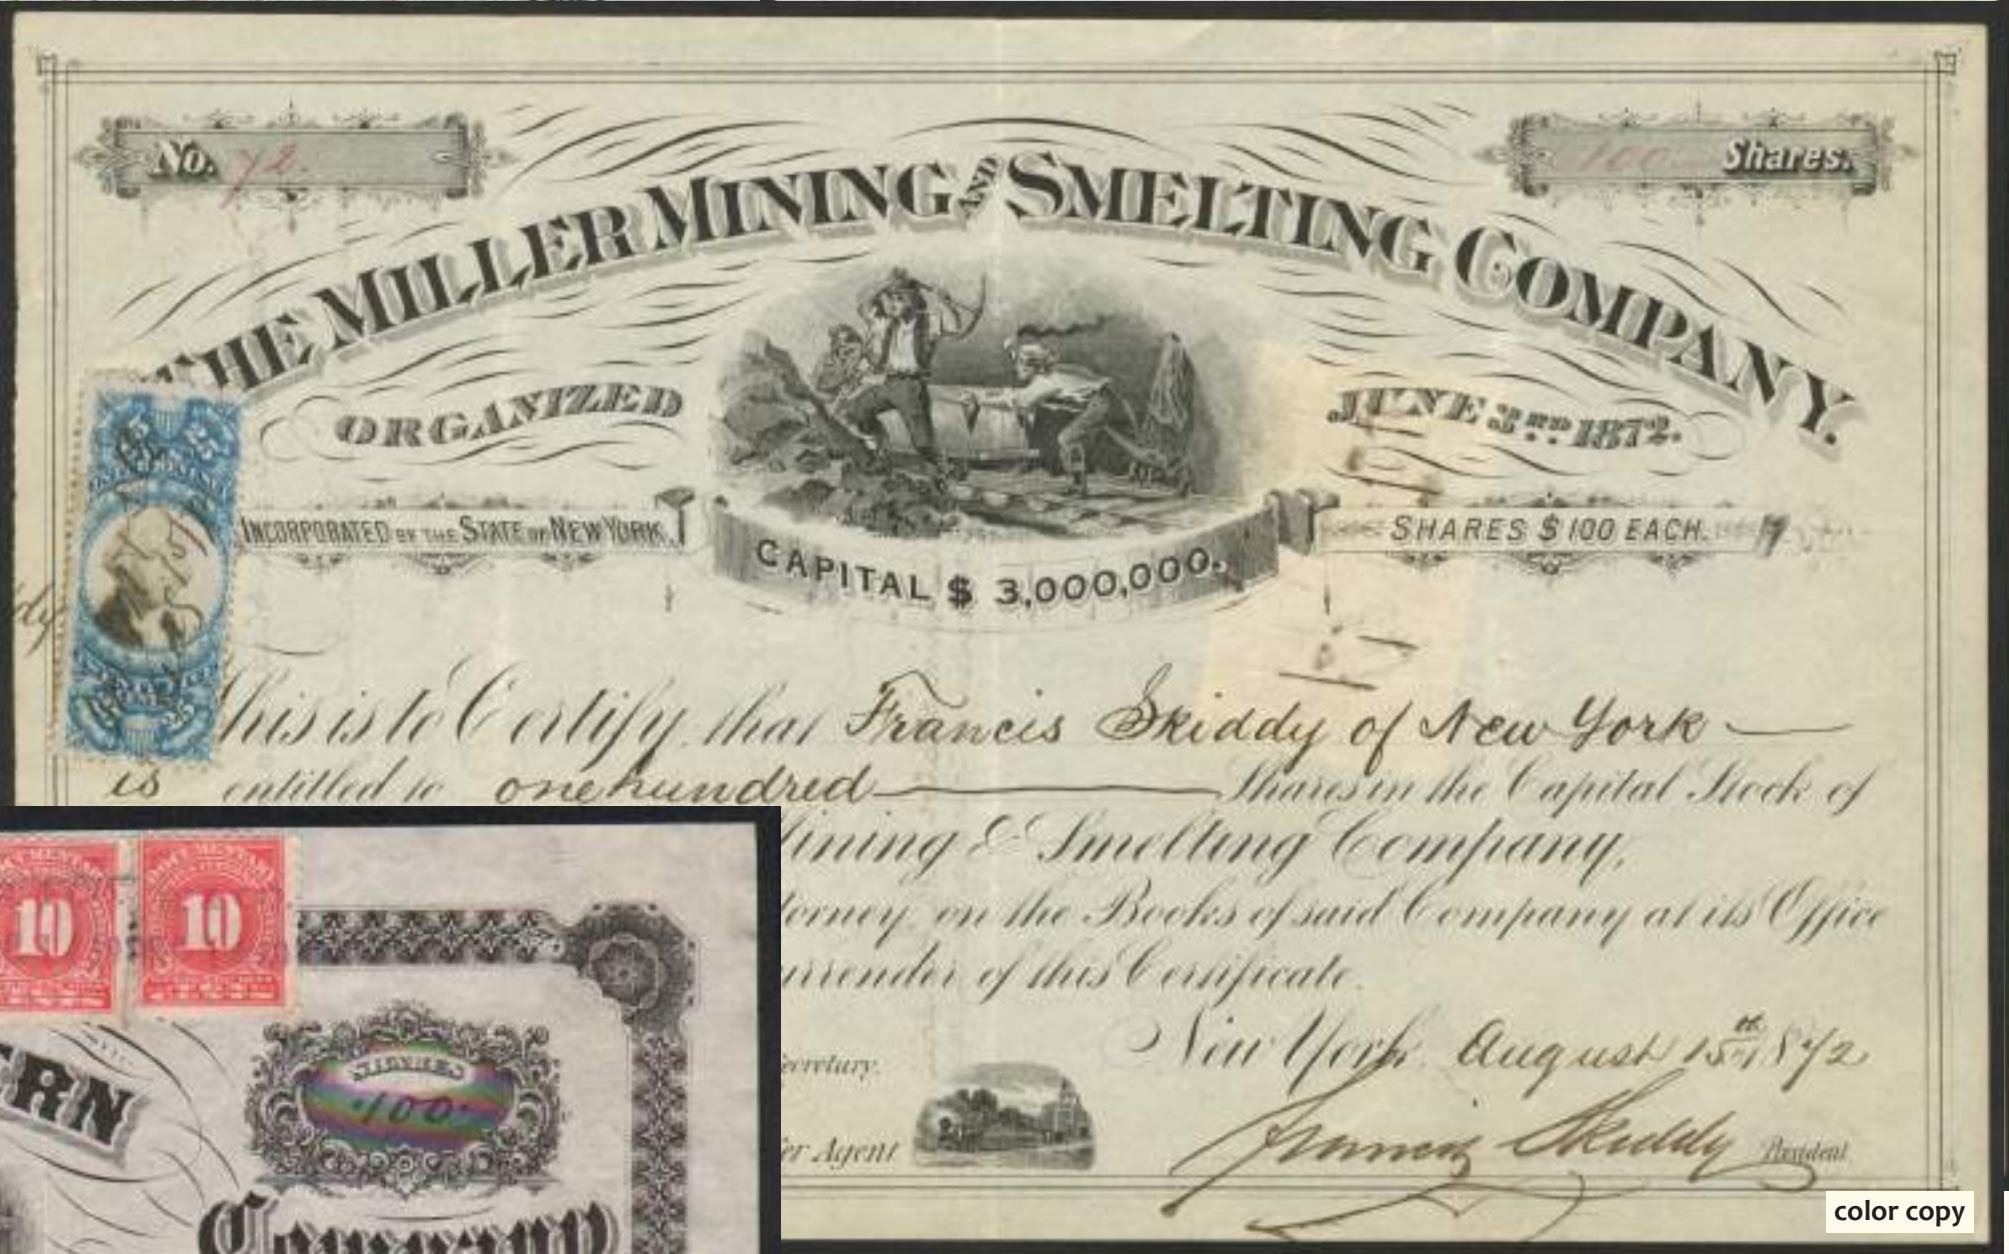 No. 72
100 Shares.
THE MILLER MINING AND SMELTING COMPANY.
ORGANIZED JUNE 3RD 1872.
INCORPORATED BY THE STATE OF NEW YORK.
SHARES $100 EACH.
CAPITAL $ 3,000,000.
25 25
This is to Certify that Francis Skiddy of New York
is entitled to one hundred Shares in the Capital Stock of
ining & Smelting Company,
torney, on the Books of said Company at its Office
urrender of this Certificate.
New York, August 15th 1872
ecretary.
Francis Skiddy President
er Agent
10 10
DOCUMENTARY
SHARES
100
RN
Company
color copy